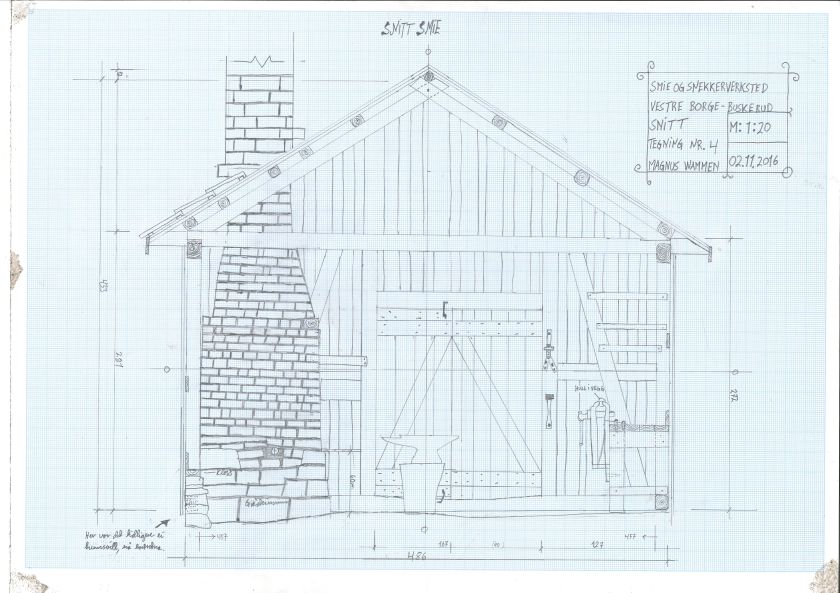 SNITT SMIE
SMIE OG SNEKKERVERKSTED
VESTRE BORGE-BUSKERUD
SNITT
M: 1:20
TEGNING NR. 4
MAGNUS WAMMEN
02.11.2016
453
291
272
HULL I VEGG
60cm
Her var det tidligere ei
457
107
127
457
486